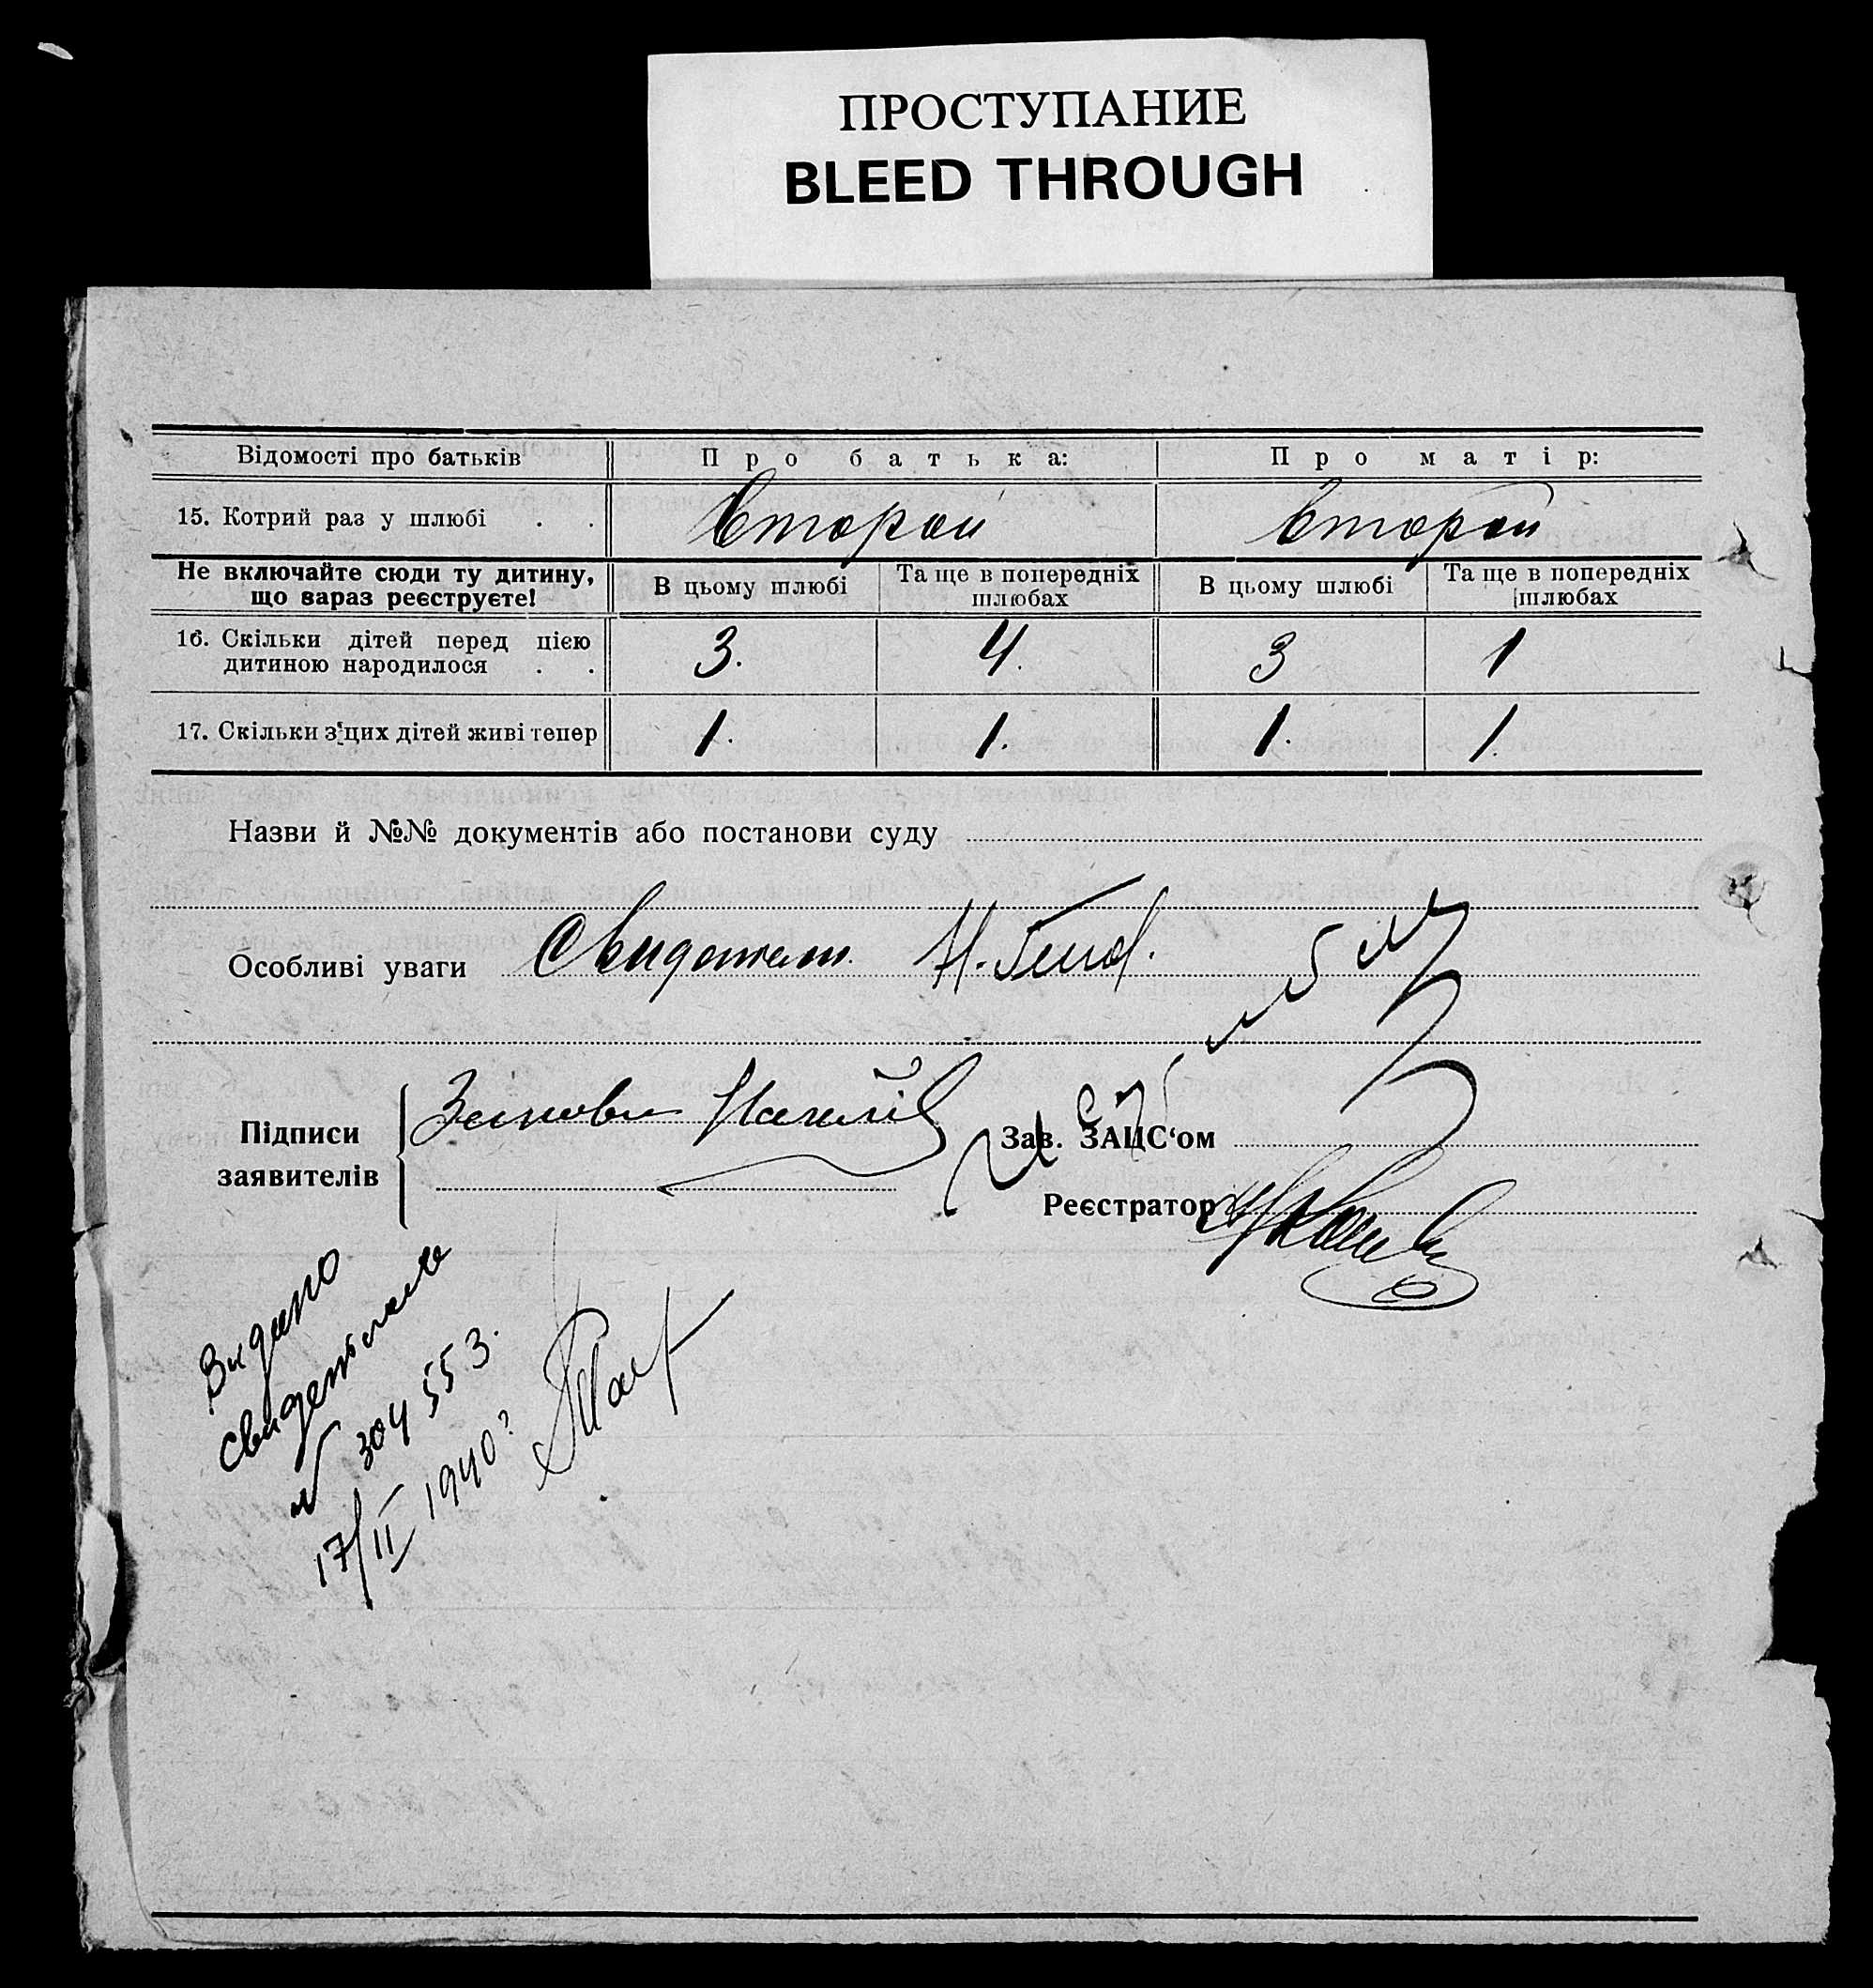 ПРОСТУПАНИЕ
BLEED THROUGH
Відомості про батьків Про батька: Про матір:
15. Котрий раз у шлюбі . . Второй Второй
Не включайте сюди ту дитину, що вараз реєструєте! В цьому шлюбі Та ще в попередніх шлюбах В цьому шлюбі Та ще в попередніх шлюбах
16. Скільки дітей перед цією дитиною народилося . . 3. 4. 3 1
17. Скільки з цих дітей живі тепер 1. 1. 1. 1.
Назви й №№ документів або постанови суду
Особливі уваги
Підписи заявителів
Зав. ЗАЦС‘ом
Реєстратор
Видано
свидетельство
№ 304553.
17/II 1940